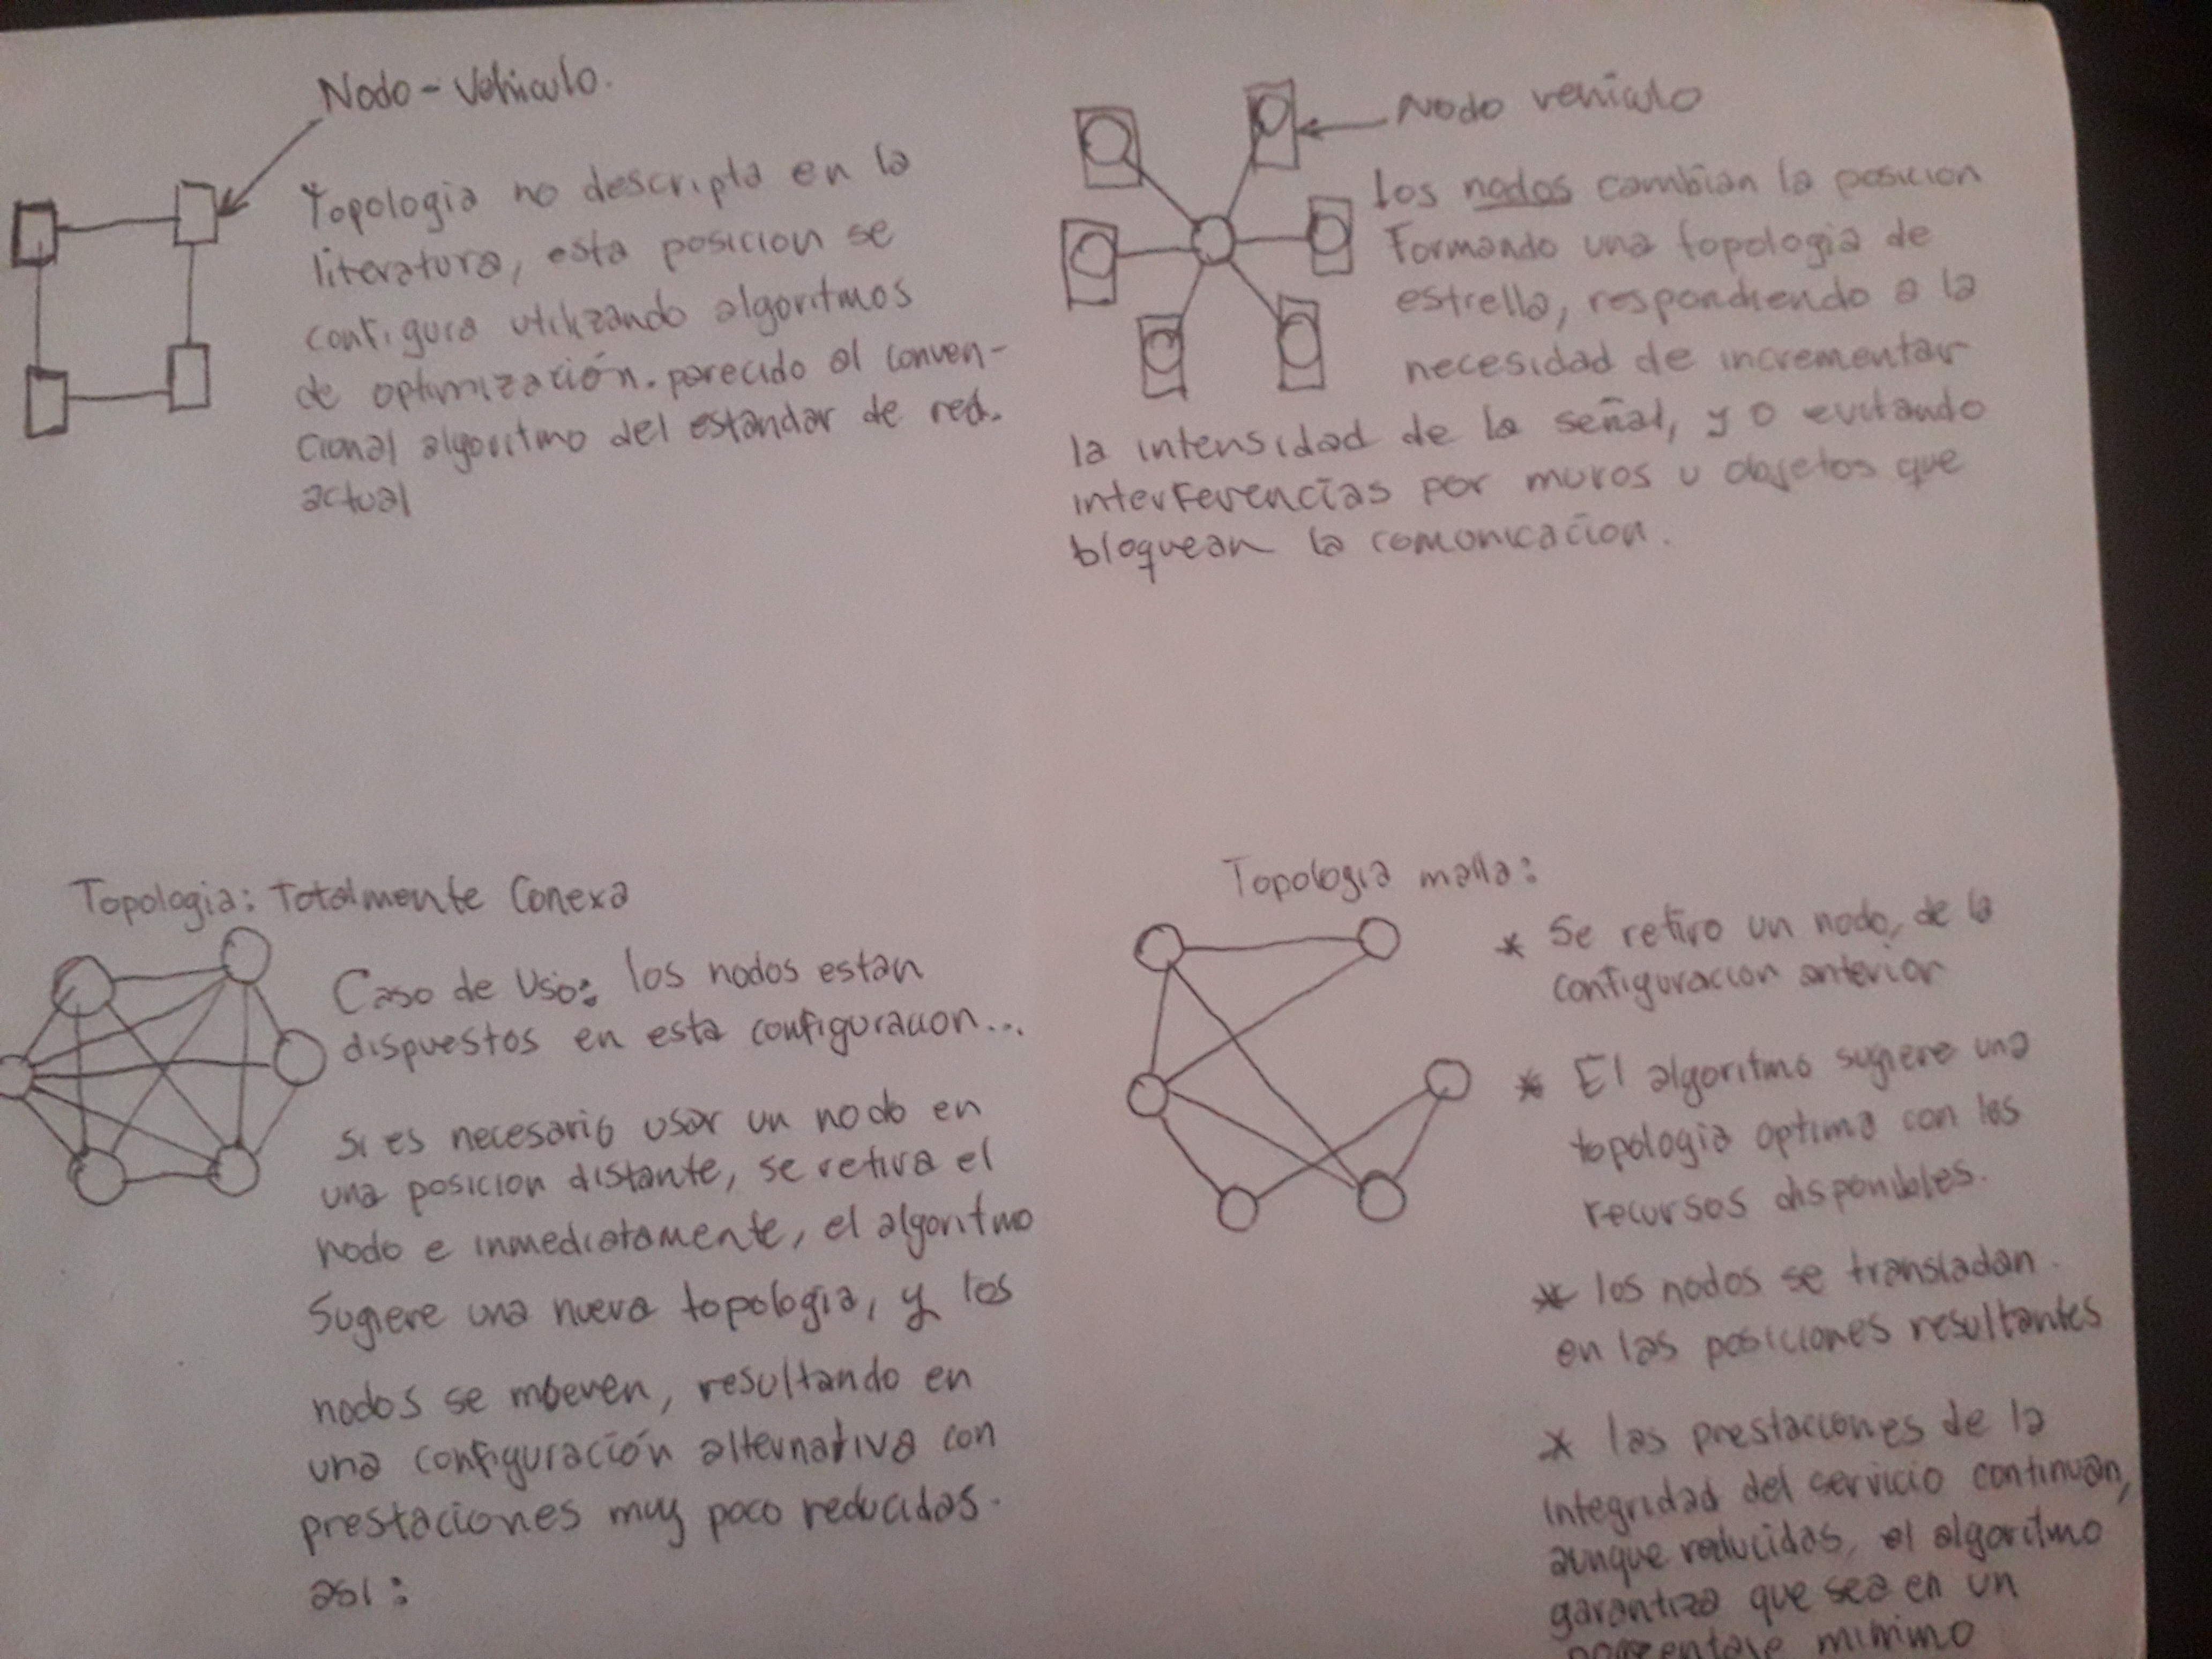 Nodo - Vehiculo.
Topologia no descripta en la
literatura, esta posicion se
configura utilizando algoritmos
de optimización. parecido al conven-
cional algoritmo del estandar de red.
actual
Nodo vehiculo
los nodos cambian la posicion
Formando una topologia de
estrella, respondiendo a la
necesidad de incrementar
la intensidad de la señal, y o evitando
interferencias por muros u objetos que
bloquean la comonicacion.
Topologia: Totalmente Conexa
Caso de Uso: los nodos estan
dispuestos en esta configuracion...
si es necesario usar un nodo en
una posicion distante, se retira el
nodo e inmediatamente, el algoritmo
Sugiere una nueva topologia, y los
nodos se moeven, resultando en
una configuración alternativa con
prestaciones muy poco reducidas.
asi:
Topologia malla:
* Se retiro un nodo, de la
configuracion anterior
* El algoritmo sugiere una
topologia optima con los
recursos disponibles.
* los nodos se transladan
en las posiciones resultantes
* las prestaciones de la
integridad del servicio continuan,
aunque reducidas, el algoritmo
garantiza que sea en un
minimo